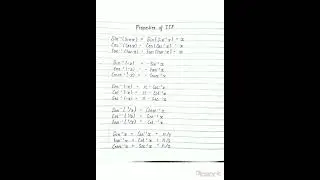 Properties of ITF
Sin⁻¹(Sinx) = Sin(Sin⁻¹x) = x
Cos⁻¹(Cosx) = Cos(Cos⁻¹x) = x
Tan⁻¹(Tanx) = Tan(Tan⁻¹x) = x
Sin⁻¹(-x) = -Sin⁻¹x
Tan⁻¹(-x) = -Tan⁻¹x
Cosec⁻¹(-x) = -Cosec⁻¹x
Cos⁻¹(-x) = π - Cos⁻¹x
Cot⁻¹(-x) = π - Cot⁻¹x
Sec⁻¹(-x) = π - Sec⁻¹x
Sin⁻¹(1/x) = Cosec⁻¹x
Cos⁻¹(1/x) = Sec⁻¹x
Tan⁻¹(1/x) = Cot⁻¹x
Sin⁻¹x + Cos⁻¹x = π/2
Tan⁻¹x + Cot⁻¹x = π/2
Cosec⁻¹x + Sec⁻¹x = π/2